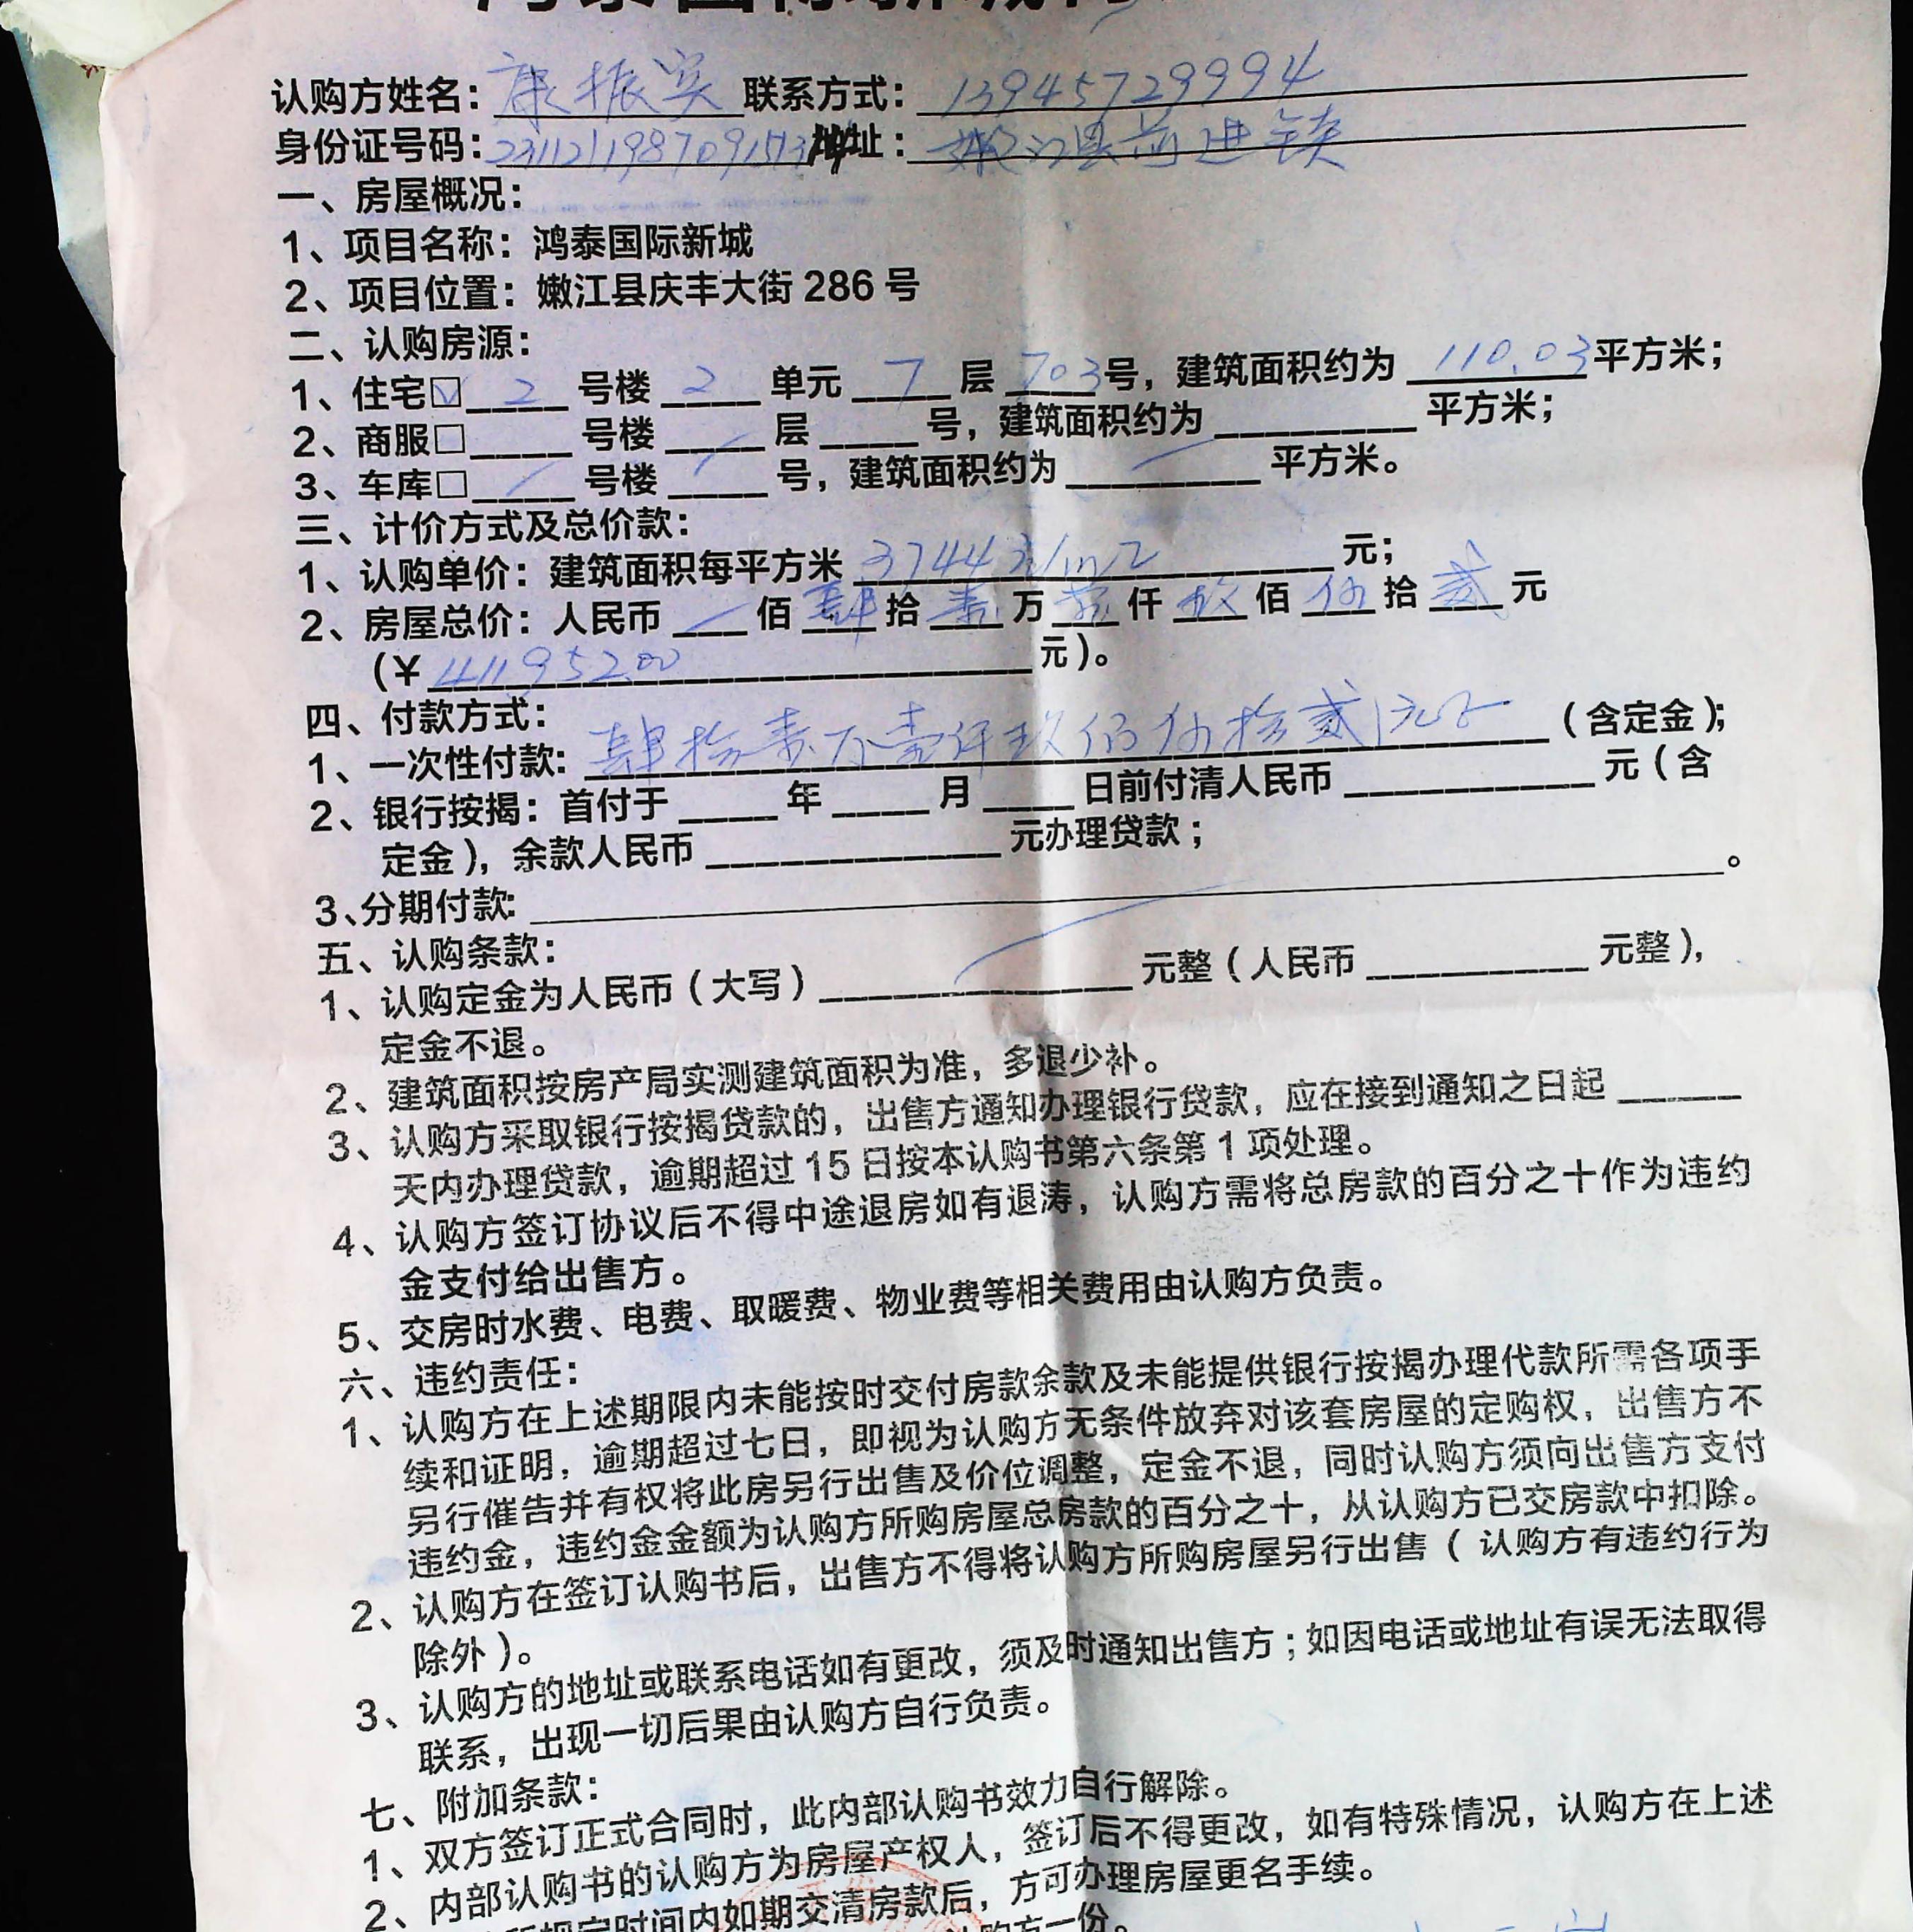 认购方姓名：康振实 联系方式：13945729994
身份证号码：地址：嫩江县前进镇
一、房屋概况：
1、项目名称：鸿泰国际新城
2、项目位置：嫩江县庆丰大街 286 号
二、认购房源：
1、住宅☑ 2 号楼 2 单元 7 层 703号，建筑面积约为 110.03平方米；
2、商服□____号楼____层____号，建筑面积约为________平方米；
3、车库□____号楼____号，建筑面积约为________平方米。
三、计价方式及总价款：
1、认购单价：建筑面积每平方米 3744元/m2 元；
2、房屋总价：人民币 / 佰 肆 拾 壹 万 壹 仟 玖 佰 伍 拾 贰 元
(¥ 411952.00 元)。
四、付款方式：
1、一次性付款：肆拾壹万壹仟玖佰伍拾贰元正（含定金）；
2、银行按揭：首付于____年____月____日前付清人民币__________元（含
定金），余款人民币____________元办理贷款；
3、分期付款：____________。
五、认购条款：
1、认购定金为人民币（大写）____________元整（人民币_________元整），
定金不退。
2、建筑面积按房产局实测建筑面积为准，多退少补。
3、认购方采取银行按揭贷款的，出售方通知办理银行贷款，应在接到通知之日起_____
天内办理贷款，逾期超过 15 日按本认购书第六条第 1 项处理。
4、认购方签订协议后不得中途退房如有退涛，认购方需将总房款的百分之十作为违约
金支付给出售方。
5、交房时水费、电费、取暖费、物业费等相关费用由认购方负责。
六、违约责任：
1、认购方在上述期限内未能按时交付房款余款及未能提供银行按揭办理代款所需各项手
续和证明，逾期超过七日，即视为认购方无条件放弃对该套房屋的定购权，出售方不
另行催告并有权将此房另行出售及价位调整，定金不退，同时认购方须向出售方支付
违约金，违约金金额为认购方所购房屋总房款的百分之十，从认购方已交房款中扣除。
2、认购方在签订认购书后，出售方不得将认购方所购房屋另行出售（认购方有违约行为
除外）。
3、认购方的地址或联系电话如有更改，须及时通知出售方；如因电话或地址有误无法取得
联系，出现一切后果由认购方自行负责。
七、附加条款：
1、双方签订正式合同时，此内部认购书效力自行解除。
2、内部认购书的认购方为房屋产权人，签订后不得更改，如有特殊情况，认购方在上述
规定时间内如期交清房款后，方可办理房屋更名手续。
购方一份。